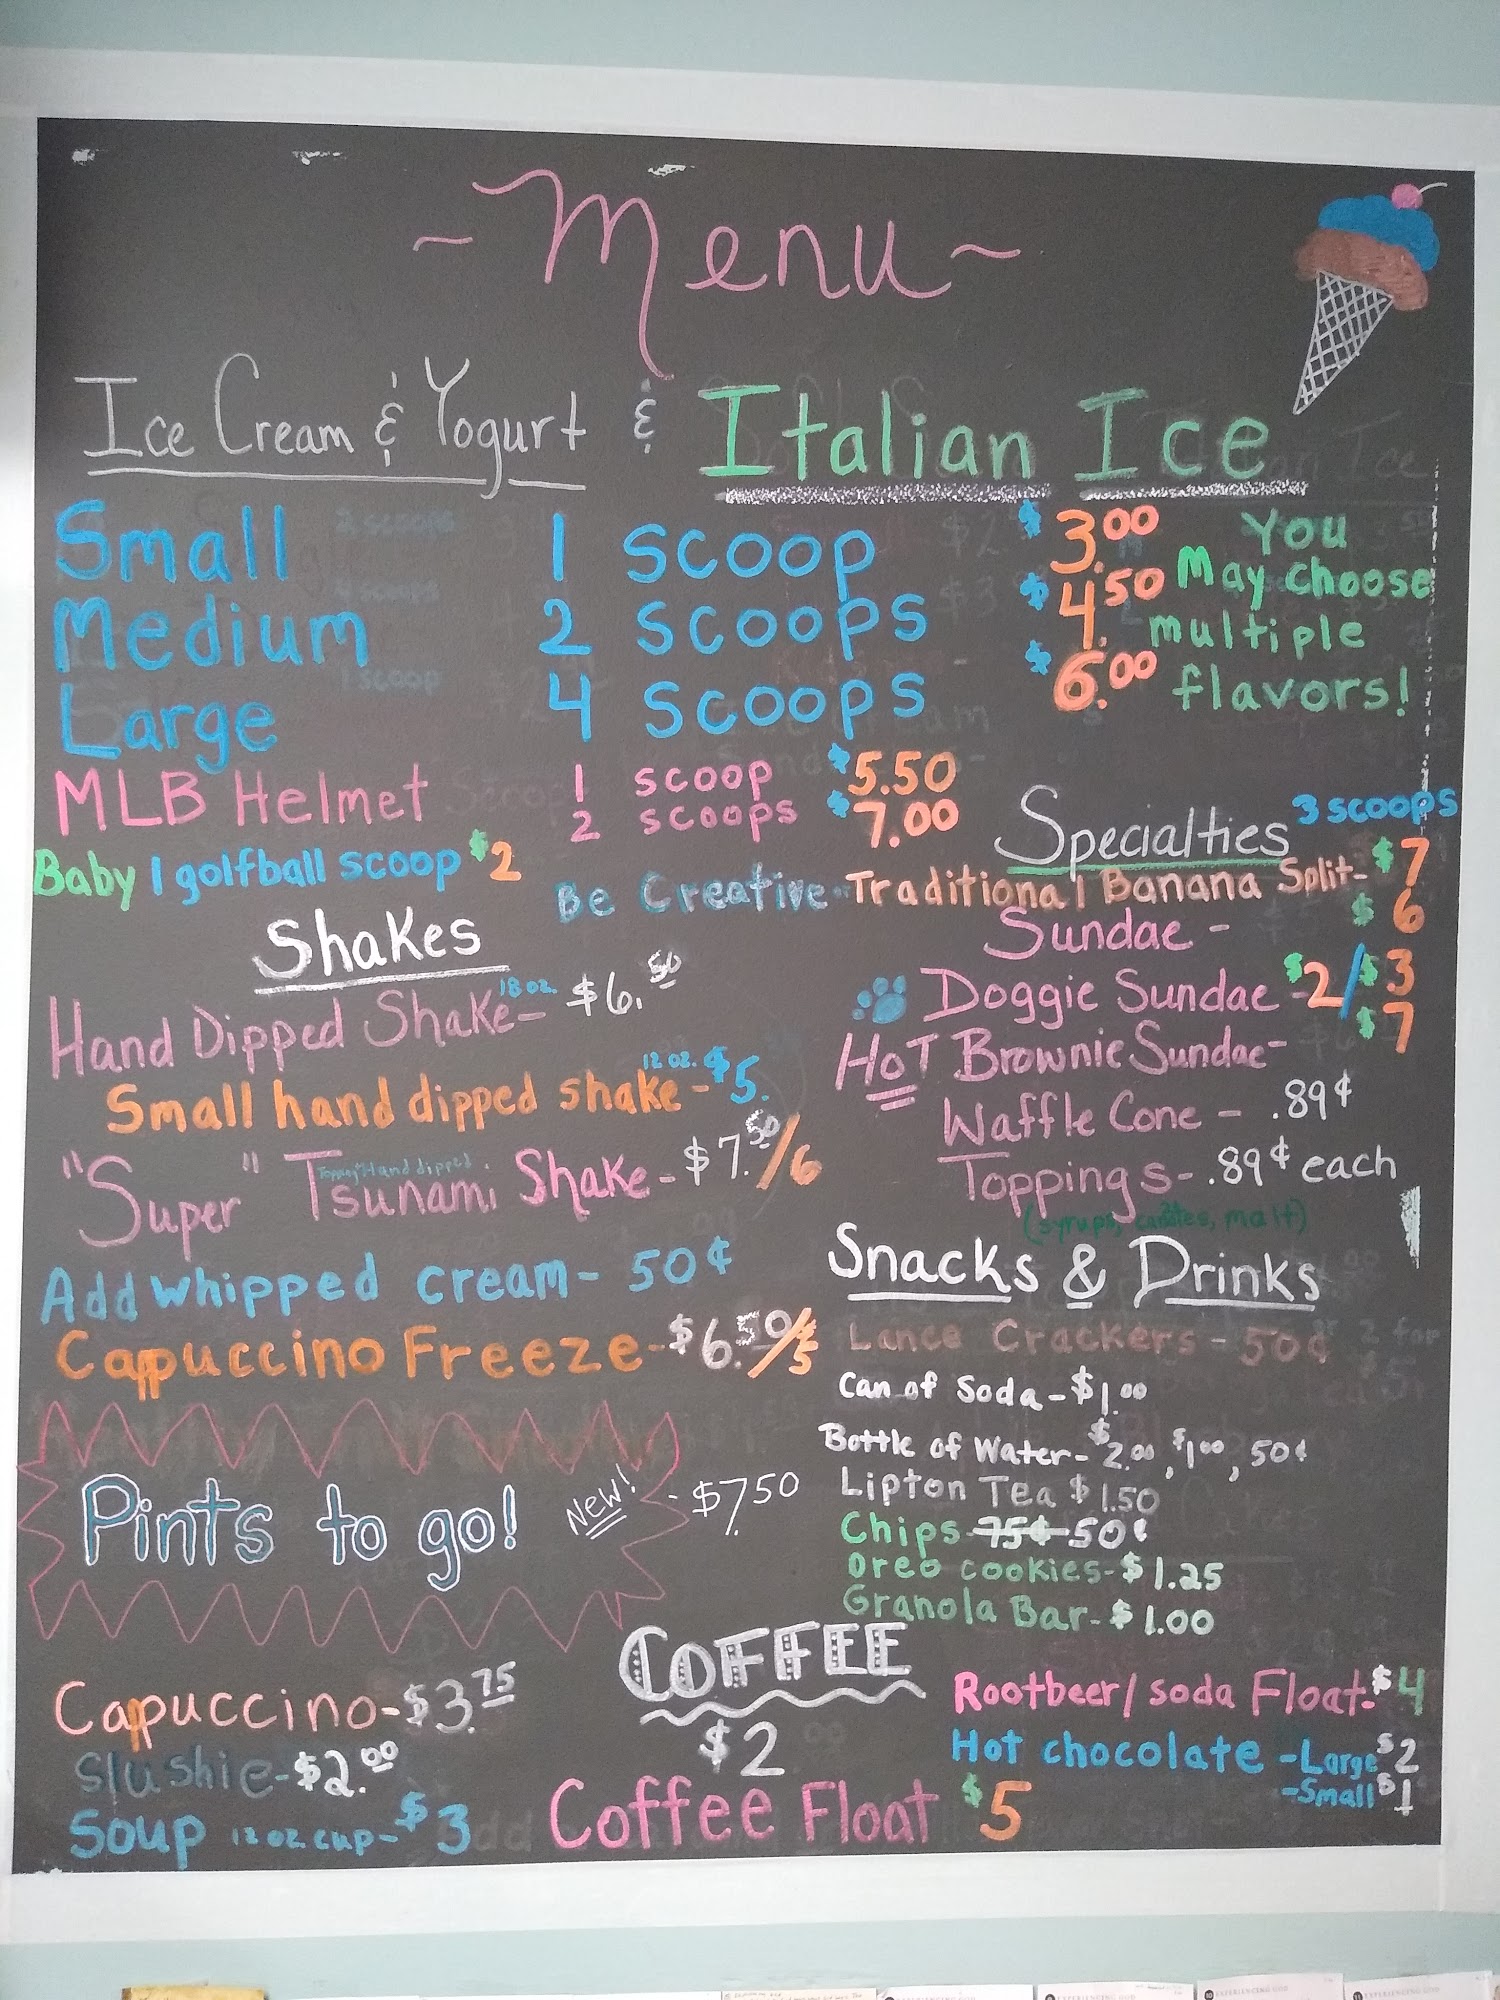 ~ Menu ~
Ice Cream & Yogurt & Italian Ice
Small 1 scoop $3.00
Medium 2 scoops $4.50
Large 4 scoops $6.00
You
May choose
multiple
flavors!
MLB Helmet 1 scoop $5.50
2 scoops $7.00
Baby 1 golfball scoop $2
Specialties 3 scoops
Be Creative or Traditional Banana Split- $7
Sundae - $6
Doggie Sundae - $2/$3
HOT Brownie Sundae- $7
Waffle Cone - .89¢
Toppings- .89¢ each
(syrups, candies, malt)
Shakes
Hand Dipped Shake 18 oz. - $6.50
Small hand dipped shake 12 oz. - $5.
"Super" Tsunami Shake - $7.50/6
Topping "Hand dipped.
Add whipped cream - 50¢
Cappuccino Freeze - $6.50/5
Pints to go! New! - $7.50
Snacks & Drinks
Lance Crackers - 50¢
Can of Soda - $1.00
Bottle of Water - $2.00, $1.00, 50¢
Lipton Tea $1.50
Chips - 75¢ 50¢
Oreo cookies - $1.25
Granola Bar - $1.00
Cappuccino - $3.75
Slushie - $2.00
Soup 12 oz. cup - $3
COFFEE
$2
Coffee Float $5
Rootbeer/soda Float - $4
Hot chocolate - Large $2
- Small $1
EXPERIENCING GOD
EXPERIENCING GOD
EXPERIENCING GOD